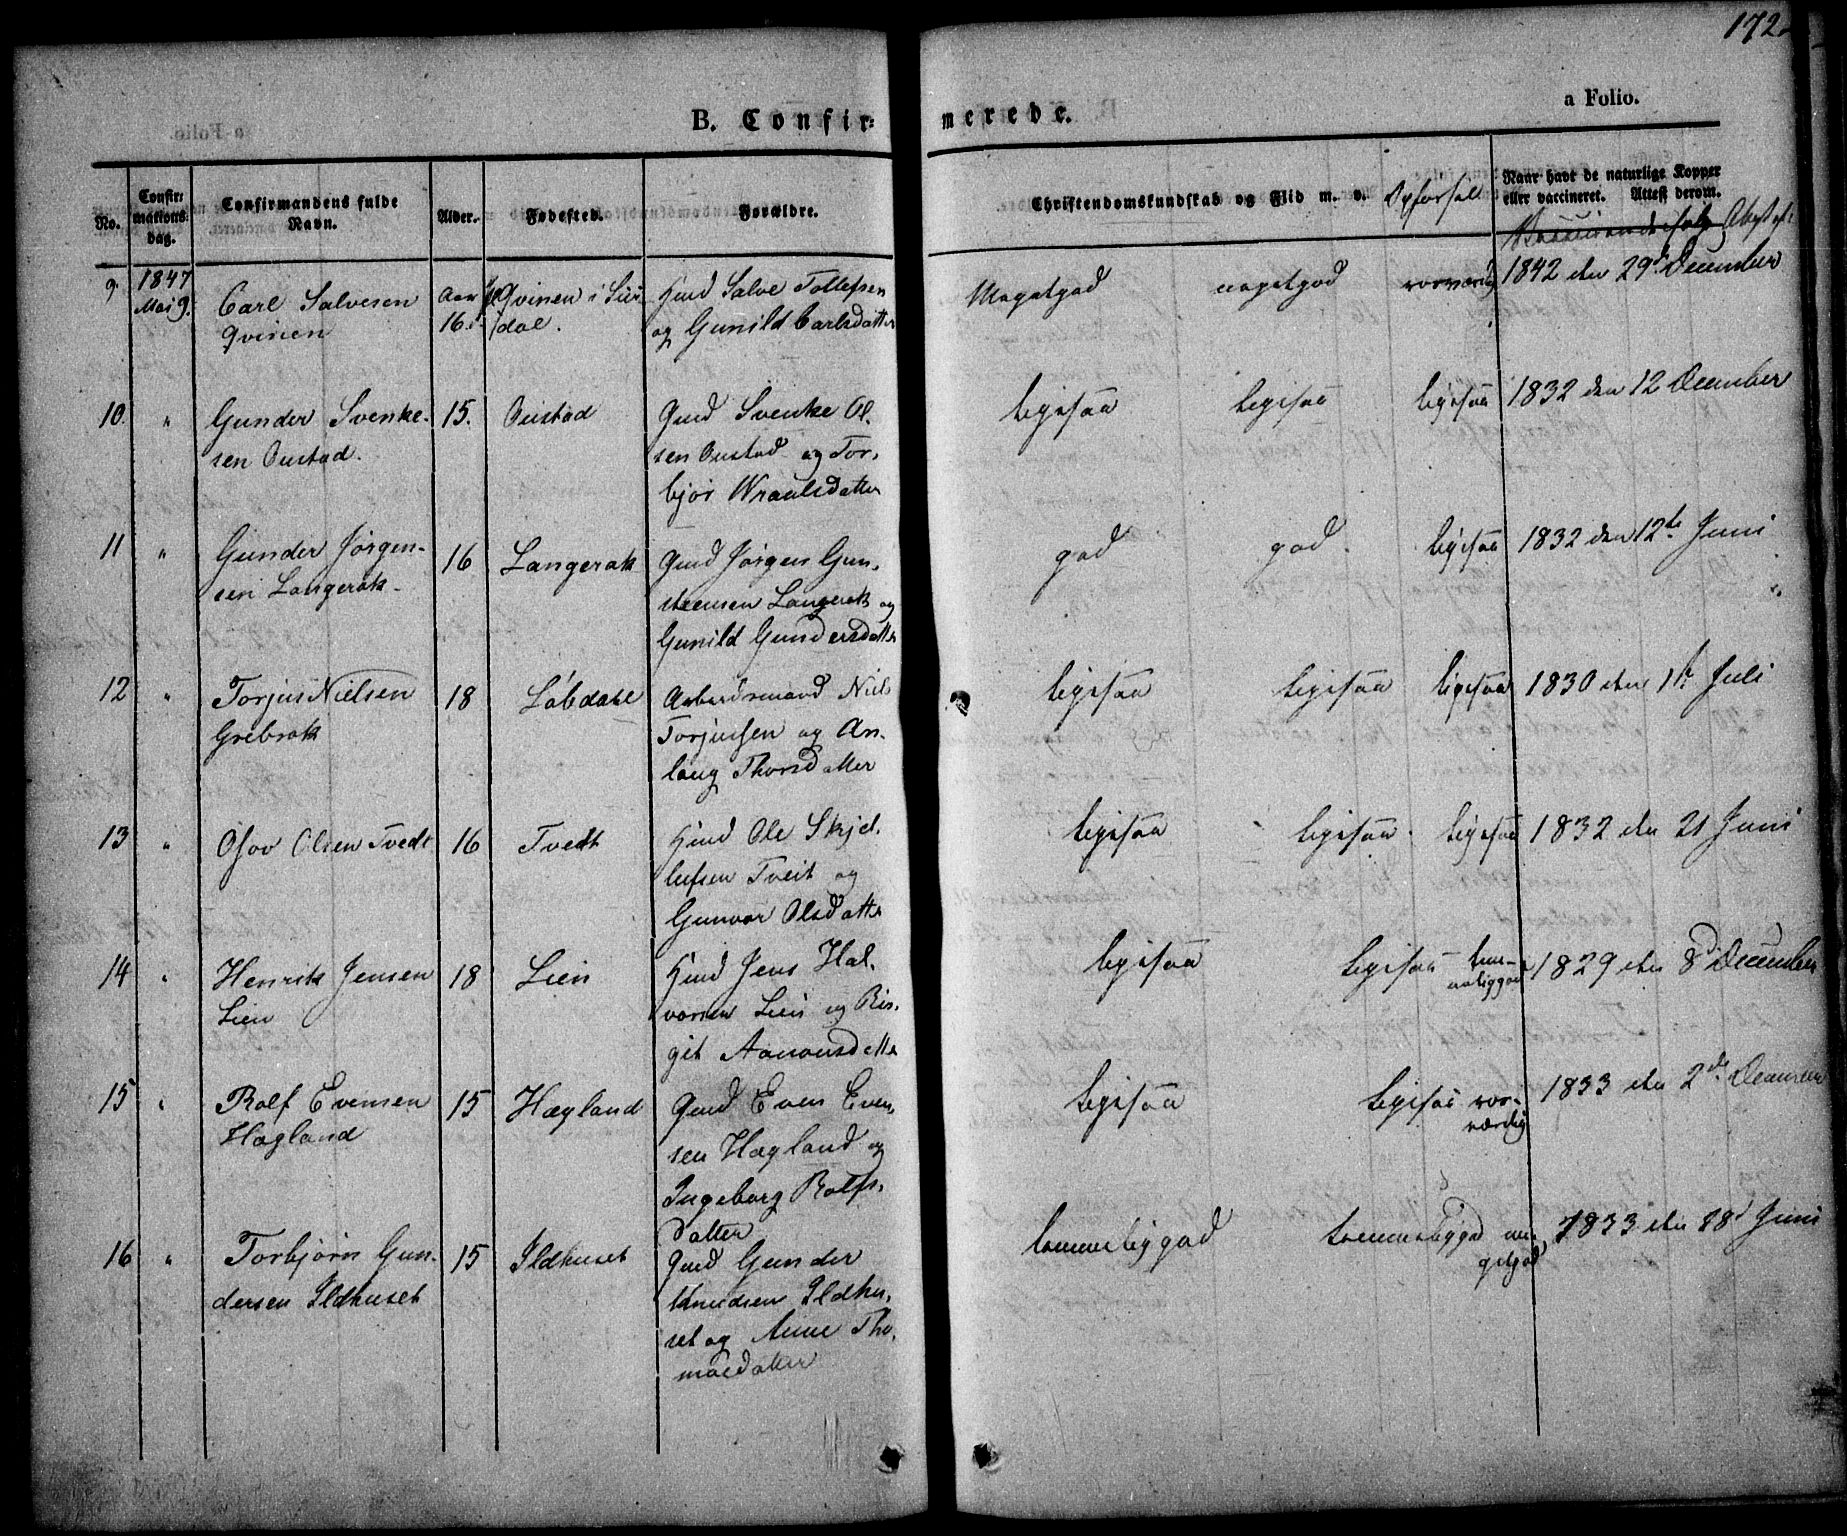 172.
a Folio.
B. Confir-
merede.
No.
Confir-
mations-
dag.
Confirmandens fulde
Navn.
Alder.
Fødested.
Forældre.
Christendomskundskab og Flid m. v.
Opførsel
Naar havt de naturlige Kopper
eller vaccineret. Attest derom.
9.
1847
Mai 9.
Carl Salvesen
Qvinen
Aar
16.
Qvinen i Sir-
dal.
Hmd Salve Tollefsen
og Gunild Carlsdatter
Megetgod
megetgod
1842 den 29d December
10.
"
Gunder Svenke-
sen Oustad.
15.
Oustad
Gmd Svenke Ol-
sen Oustad og Tor-
bjør Wraalsdatter
ligesaa
ligesaa
ligesaa
1832 den 12 December
11
"
Gunder Jørgen-
sen Langerak.
16
Langerak
Gmd Jørgen Gun-
stensen Langerak og
Gunild Gundersdatter
god
god.
ligesaa
1832 den 12te Juni
12
"
Torjus Nielsen
Grebrok
18
Løbdahl
Arbeidsmand Niels
Torjussen og An-
laug Thorsdatter
ligesaa
ligesaa
ligesaa
1830 den 1ste Juli
13
"
Osov Olsen Tvedt
16
Tvedt
Hmd Ole Skjel-
lufsen Tveit og
Gunvor Olsdatter
ligesaa
ligesaa
ligesaa
1832 den 21 Juni
14
"
Henrik Jensen
Lien
18
Lien
Hmd Jens Hal-
vorsen Lien og Bir-
git Aanonsdatter
ligesaa
ligesaa
1829 den 8d December
15
"
Rolf Evensen
Hægland
15
Hægland
Gmd Even Even-
sen Hægland og
Ingeborg Rolfs-
datter
ligesaa
ligesaa
1833 den 2de December
16
"
Torbjørn Gun-
dersen Ildhuset
15
Ildhuset
Gmd Gunder
Knudsen Ildhu-
set og Anne Tho-
masdatter
temmeliggod
temmeliggod me-
getgod
1833 den 18d Juni